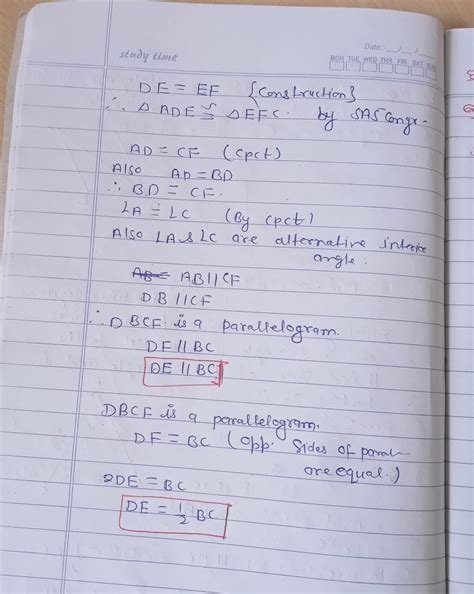 study time
Date: __/__/__
MON TUE WED THR FRI SAT SUN
DE = EF {Construction}
∴ △ ADE ≅ △EFC. by SAS Congr-
AD = CF (cpct)
Also AD = BD
∴ BD = CF.
∠A = ∠C (By cpct)
Also ∠A & ∠C are alternative interior
angle.
AB || CF
DB || CF
∴ DBCF is a parallelogram.
DF || BC
DE || BC
DBCF is a parallelogram.
DF = BC (opp. sides of paral-
are equal.)
2DE = BC
DE = 1/2 BC